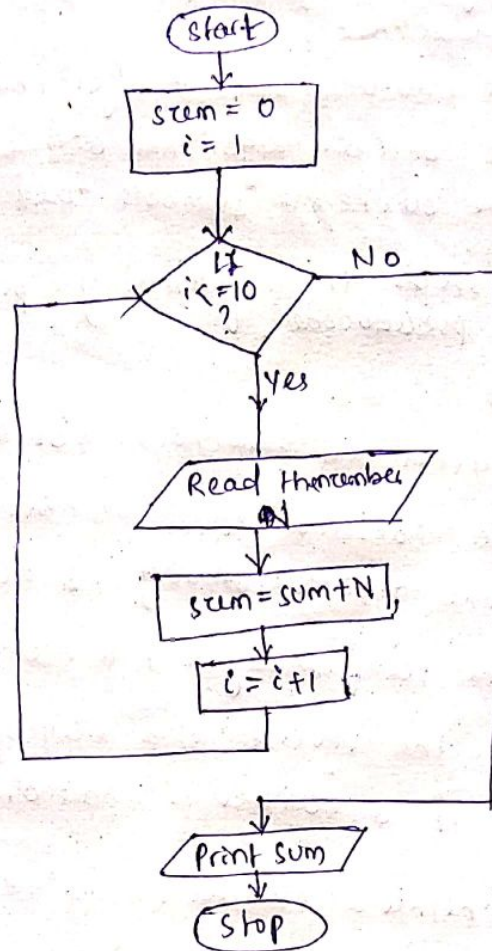 Start
sum = 0
i = 1
If
i<=10
?
No
Yes
Read the number
N
sum = sum+N
i = i+1
Print sum
Stop